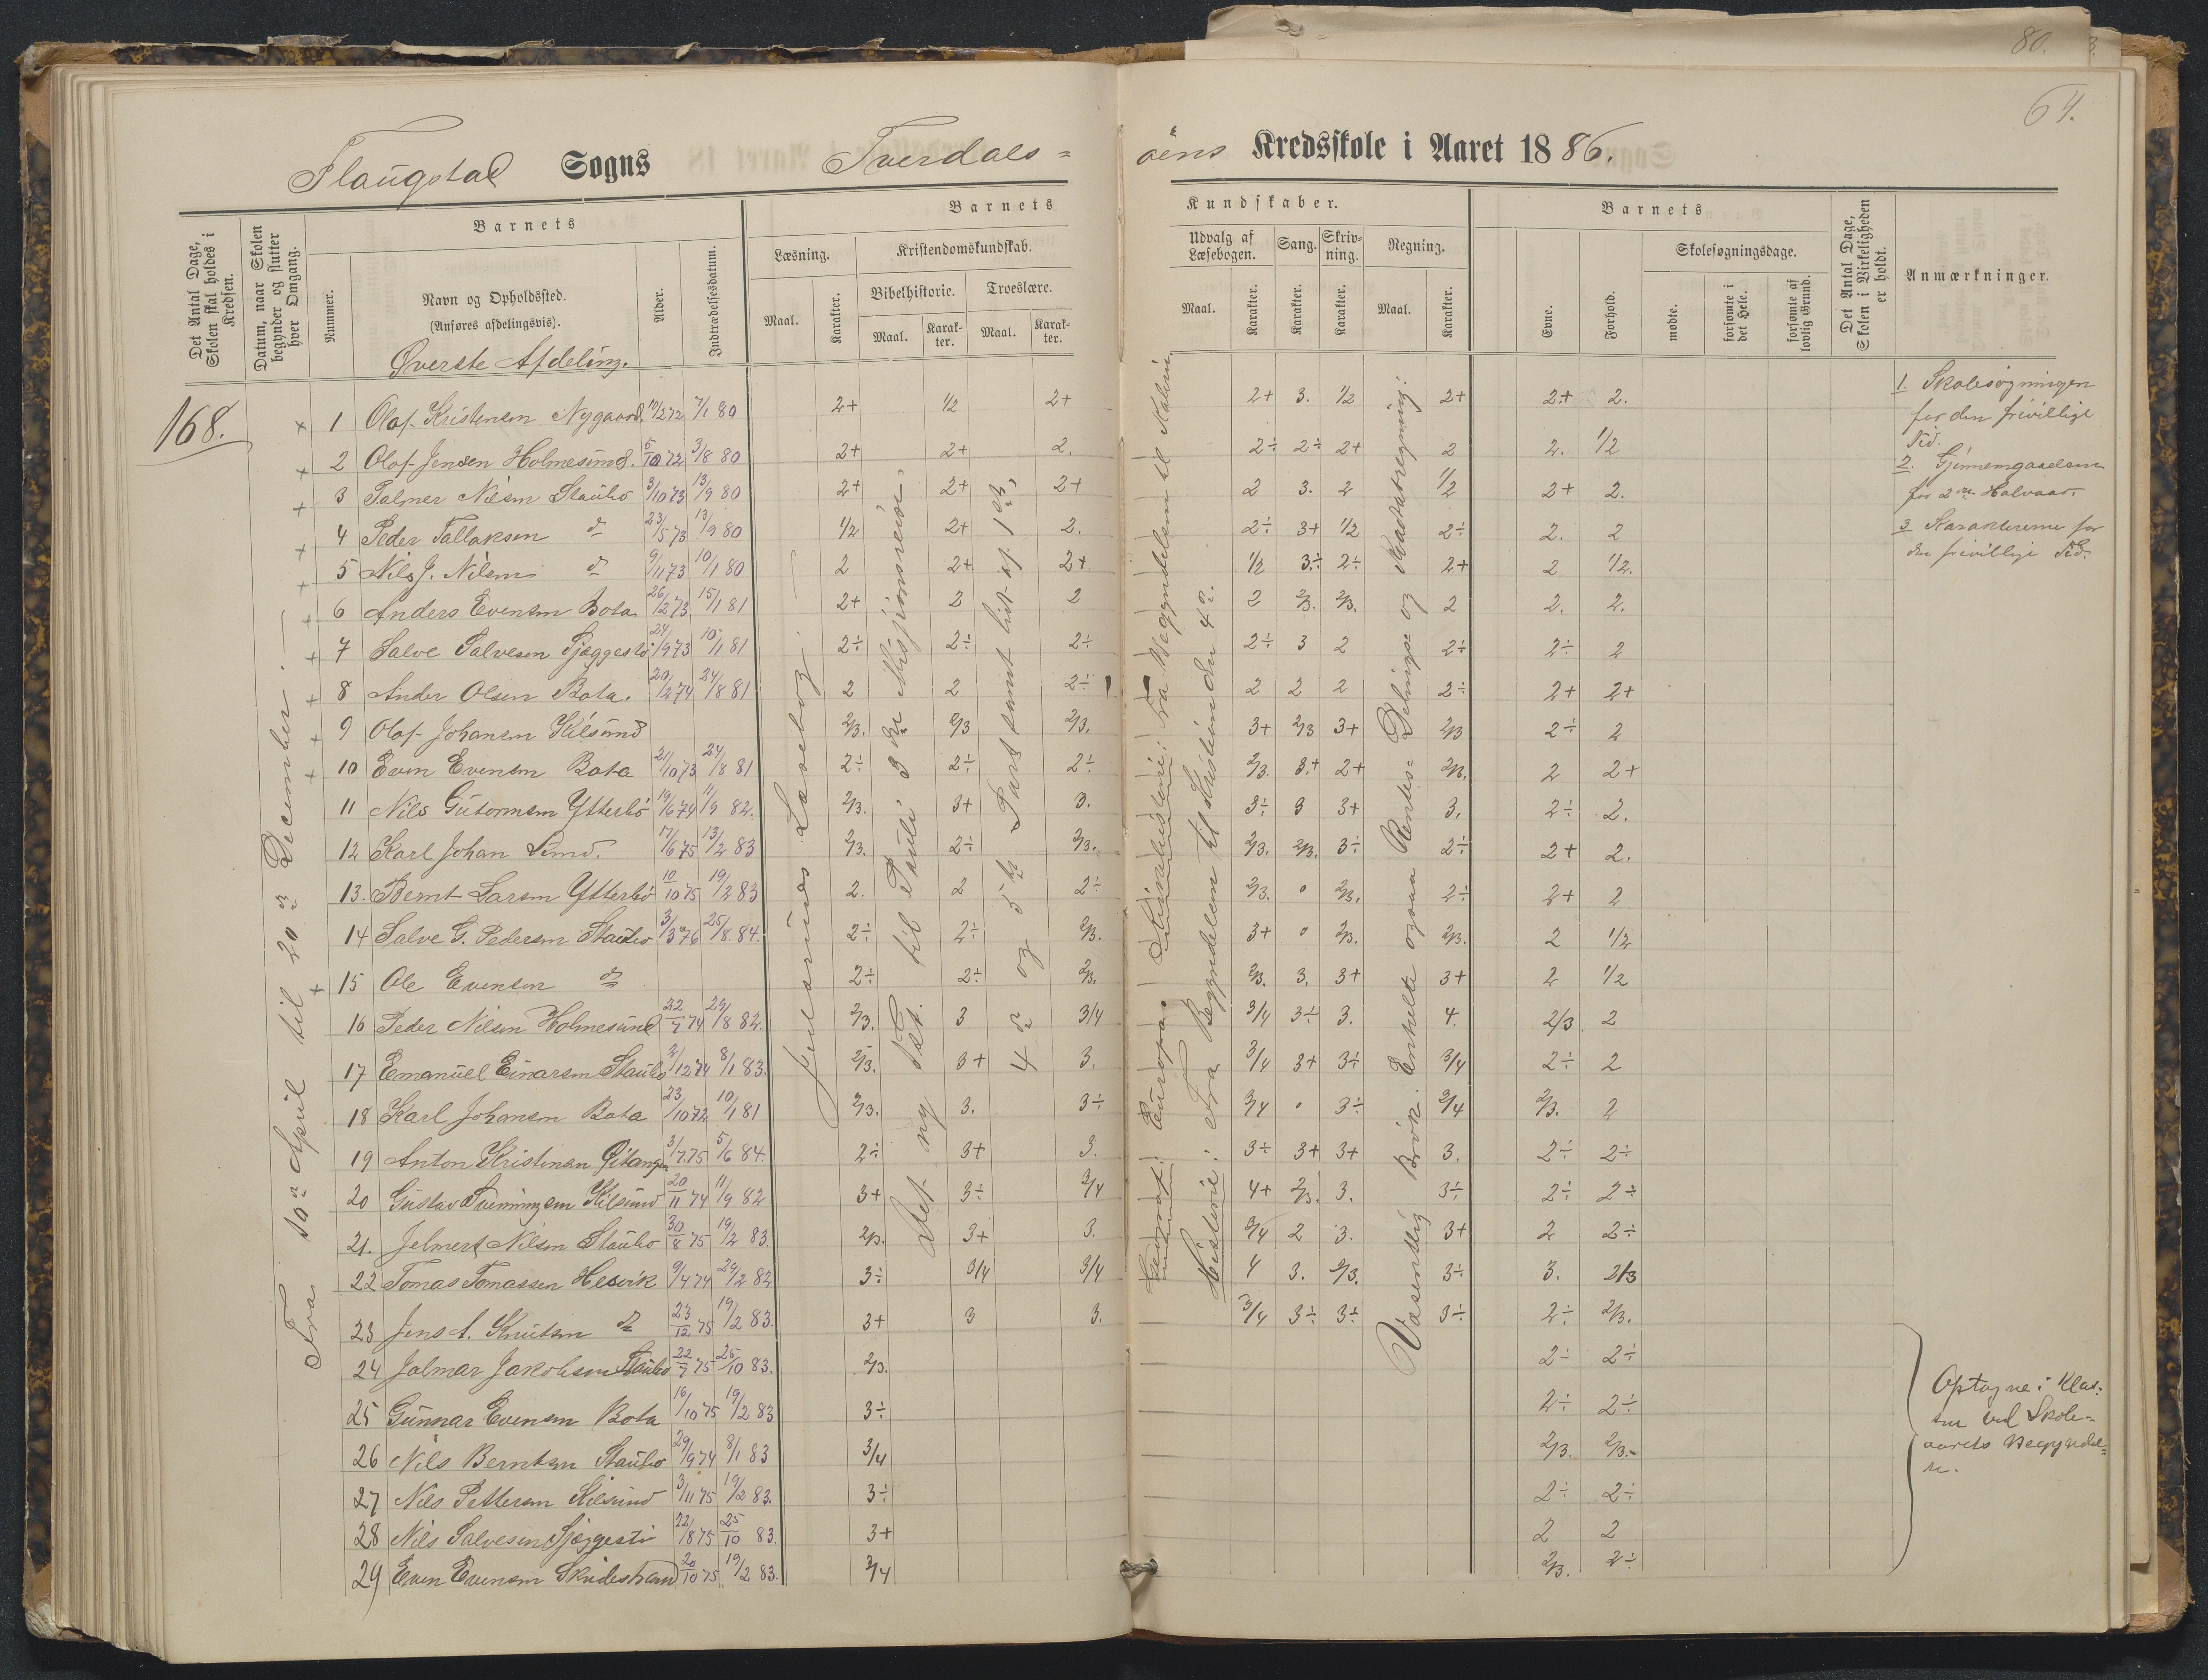 80.
64.
Flaugstad Sogns Tverdals=
öens Kredsskole i Aaret 1886.
Det Antal Dage, Skolen skal holdes i Kredsen.
Datum, naar Skolen begynder og slutter hver Omgang.
Barnets
Nummer.
Navn og Opholdssted.
(Anføres afdelingsvis).
Alder.
Indtrædelsesdatum.
Barnets
Kundskaber.
Læsning.
Maal.
Karakter.
Kristendomskundskab.
Bibelhistorie.
Maal.
Karakter.
Troeslære.
Maal.
Karakter.
Udvalg af Læsebogen.
Maal.
Karakter.
Sang.
Karakter.
Skrivning.
Karakter.
Regning.
Maal.
Karakter.
Barnets
Evne.
Forhold.
Skolesøgningsdage.
mødte.
forsømte i det Hele.
forsømte af lovlig Grund.
Det Antal Dage, Skolen i Virkeligheden er holdt.
Anmærkninger.
Øverste Afdeling.
168.
Fra 10de April til 20de December.
× 1 Olaf Kristensen Nygaard. 19/2 72 7/1 80 2+ 1/2 2+ 2+ 3. 1/2 2+ 2+ 2.
+ 2 Olaf Jensen Holmesund. 5/10 72 3/8 80 2+ 2+ 2. 2÷ 2÷ 2+ 2 2. 1/2
+ 3 Palmer Nilsen Staubo 3/10 73 13/9 80 2+ 2+ 2+ 2 3. 2 1/2 2+ 2.
+ 4 Peder Tallaksen do 23/5 73 13/9 80 1/2 2+ 2. 2÷ 3+ 1/2 2÷ 2. 2
+ 5 Nils J. Nilsen do 9/11 73 10/1 80 2 2+ 2+ 1/2 3÷ 2÷ 2+ 2 1/2.
+ 6 Anders Evensen Bota 26/12 73 15/1 81 2+ 2 2 2 2/3. 2/3. 2 2. 2.
+ 7 Salve Salvesen Sjæggestø 24/9 73 10/1 81 2÷ 2÷ 2÷ 2÷ 3 2 2÷ 2÷ 2
+ 8 Ander Olsen Bota. 20/2 74 24/8 81 2 2 2÷ 2 2 2 2÷ 2+ 2+
+ 9 Olaf Johansen Kilsund 2/3. 2/3 2/3. 3+ 2/3 3+ 2/3 2÷ 2
+ 10 Even Evensen Bota 21/10 73 24/8 81 2÷ 2÷ 2÷ 2/3. 3+ 2+ 2/3. 2 2+
11 Nils Gutormsen Ytterbö 19/6 74 11/9 82. 2/3. 3+ 3. 3÷ 3 3+ 3. 2÷ 2.
12 Karl Johan Sund. 17/6 75 13/2 83 2/3. 2÷ 2/3. 2/3. 2/3. 3÷ 2÷ 2+ 2.
13. Bernt Larsen Ytterbö 10/10 75 19/2 83 2. 2 2÷ 2/3. 0 2/3. 2÷ 2+ 2
14 Salve G. Pedersen Staubo 3/3 76 25/8 84. 2÷ 2÷ 2/3. 3+ 0 2/3. 2/3. 2 1/2
+ 15 Ole Evensen do 2÷ 2÷ 2/3. 2/3. 3. 3+ 3+ 2 1/2
16 Peder Nilsen Holmesund 22/7 74 29/8 82. 2/3. 3 3/4 3/4 3÷ 3. 4. 2/3 2
17 Emanuel Einarsen Staubo 2/12 74 8/1 83. 2/3. 3+ 3. 3/4 3+ 3÷ 3/4 2÷ 2
18 Karl Johansen Bota 23/10 72 10/1 81 2/3. 3. 3÷ 3/4 0 3÷ 3/4 2/3. 2
19 Anton Kristensen Gitangen 3/7 75 5/6 84. 2÷ 3+ 3. 3÷ 3+ 3+ 3. 2÷ 2÷
20 Gustav Svenningsen Kilsund 20/11 74 11/9 82 3+ 3÷ 3/4 4+ 2/3. 3. 3÷ 2÷ 2÷
21. Jelmert Nilsen Staubo 30/8 75 19/2 83 2/3. 3+ 3. 3/4 2 3. 3+ 2 2÷
22 Tomas Tomassen Hesvik 9/4 74 29/2 82 3÷ 3/4 3/4 4 3. 2/3. 3÷ 3. 2/3
23 Jens A. Knutsen do 23/12 75 19/2 83. 3+ 3 3. 3/4 3÷ 3÷ 3÷ 2÷ 2/3.
24 Jalmar Jakobsen Staubo 22/7 75 25/10 83. 2/3. 2÷ 2÷
25 Gunnar Evensen Bota 16/10 75 19/2 83 3÷ 2÷ 2÷
26 Nils Berntsen Staubo 29/9 74 8/1 83 3/4 2/3. 2/3.
27 Nils Pettersen Kilsund 3/11 75 19/2 83. 3÷ 2÷ 2÷
28 Nils Salvesen Sjæggestø 22/8 75 25/10 83. 3+ 2 2
29 Even Evensen Skudestrand 20/10 75 19/2 83. 3/4 2/3. 2÷
Læsebog.
Det ny Test. til Pauli 3die Missjonsreise.
4de og 5te Part samt lidt af 1ste.
Geografi: Europa. Kirkehistorie: Fra Begyndelsen til
Historie: Fra Begyndelsen til Kristian den 4de.
Væsentlig Brök. Enkelte ogsaa Rentes= Delings= og Kvadratregning.
1. Skolesögningen
for den frivillige
Tid.
2. Gjennemgaaelsen
for 2det Halvaar.
3 Karaktererne for
den frivillige Tid.
Optagne i Klas=
sen ved Skole=
aarets Begyndel=
se.